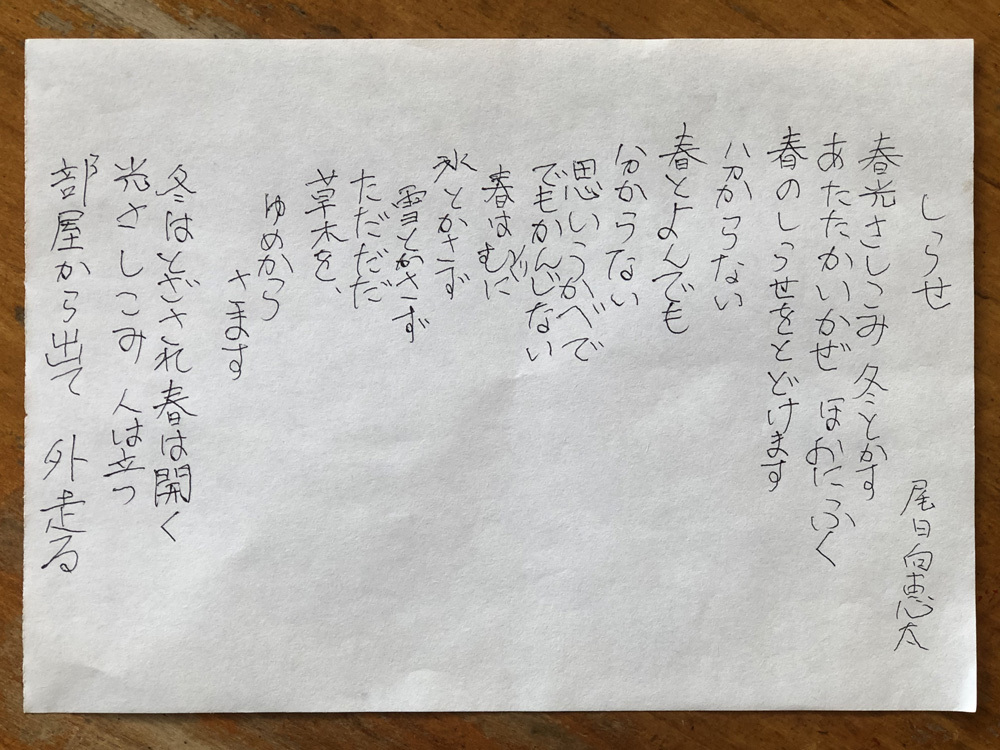 しらせ
尾日向恵太
春光さしこみ 冬とかす
あたたかいかぜ ほおにふく
春のしらせをとどけます
分からない
春とよんでも
分からない
思いうかべで
でもかんじない
春はむくりに
氷とかさず
雪とかさず
ただだだ
草木を、
ゆめから
さます
冬はとざされ春は開く
光さしこみ 人は立つ
部屋から出て 外走る